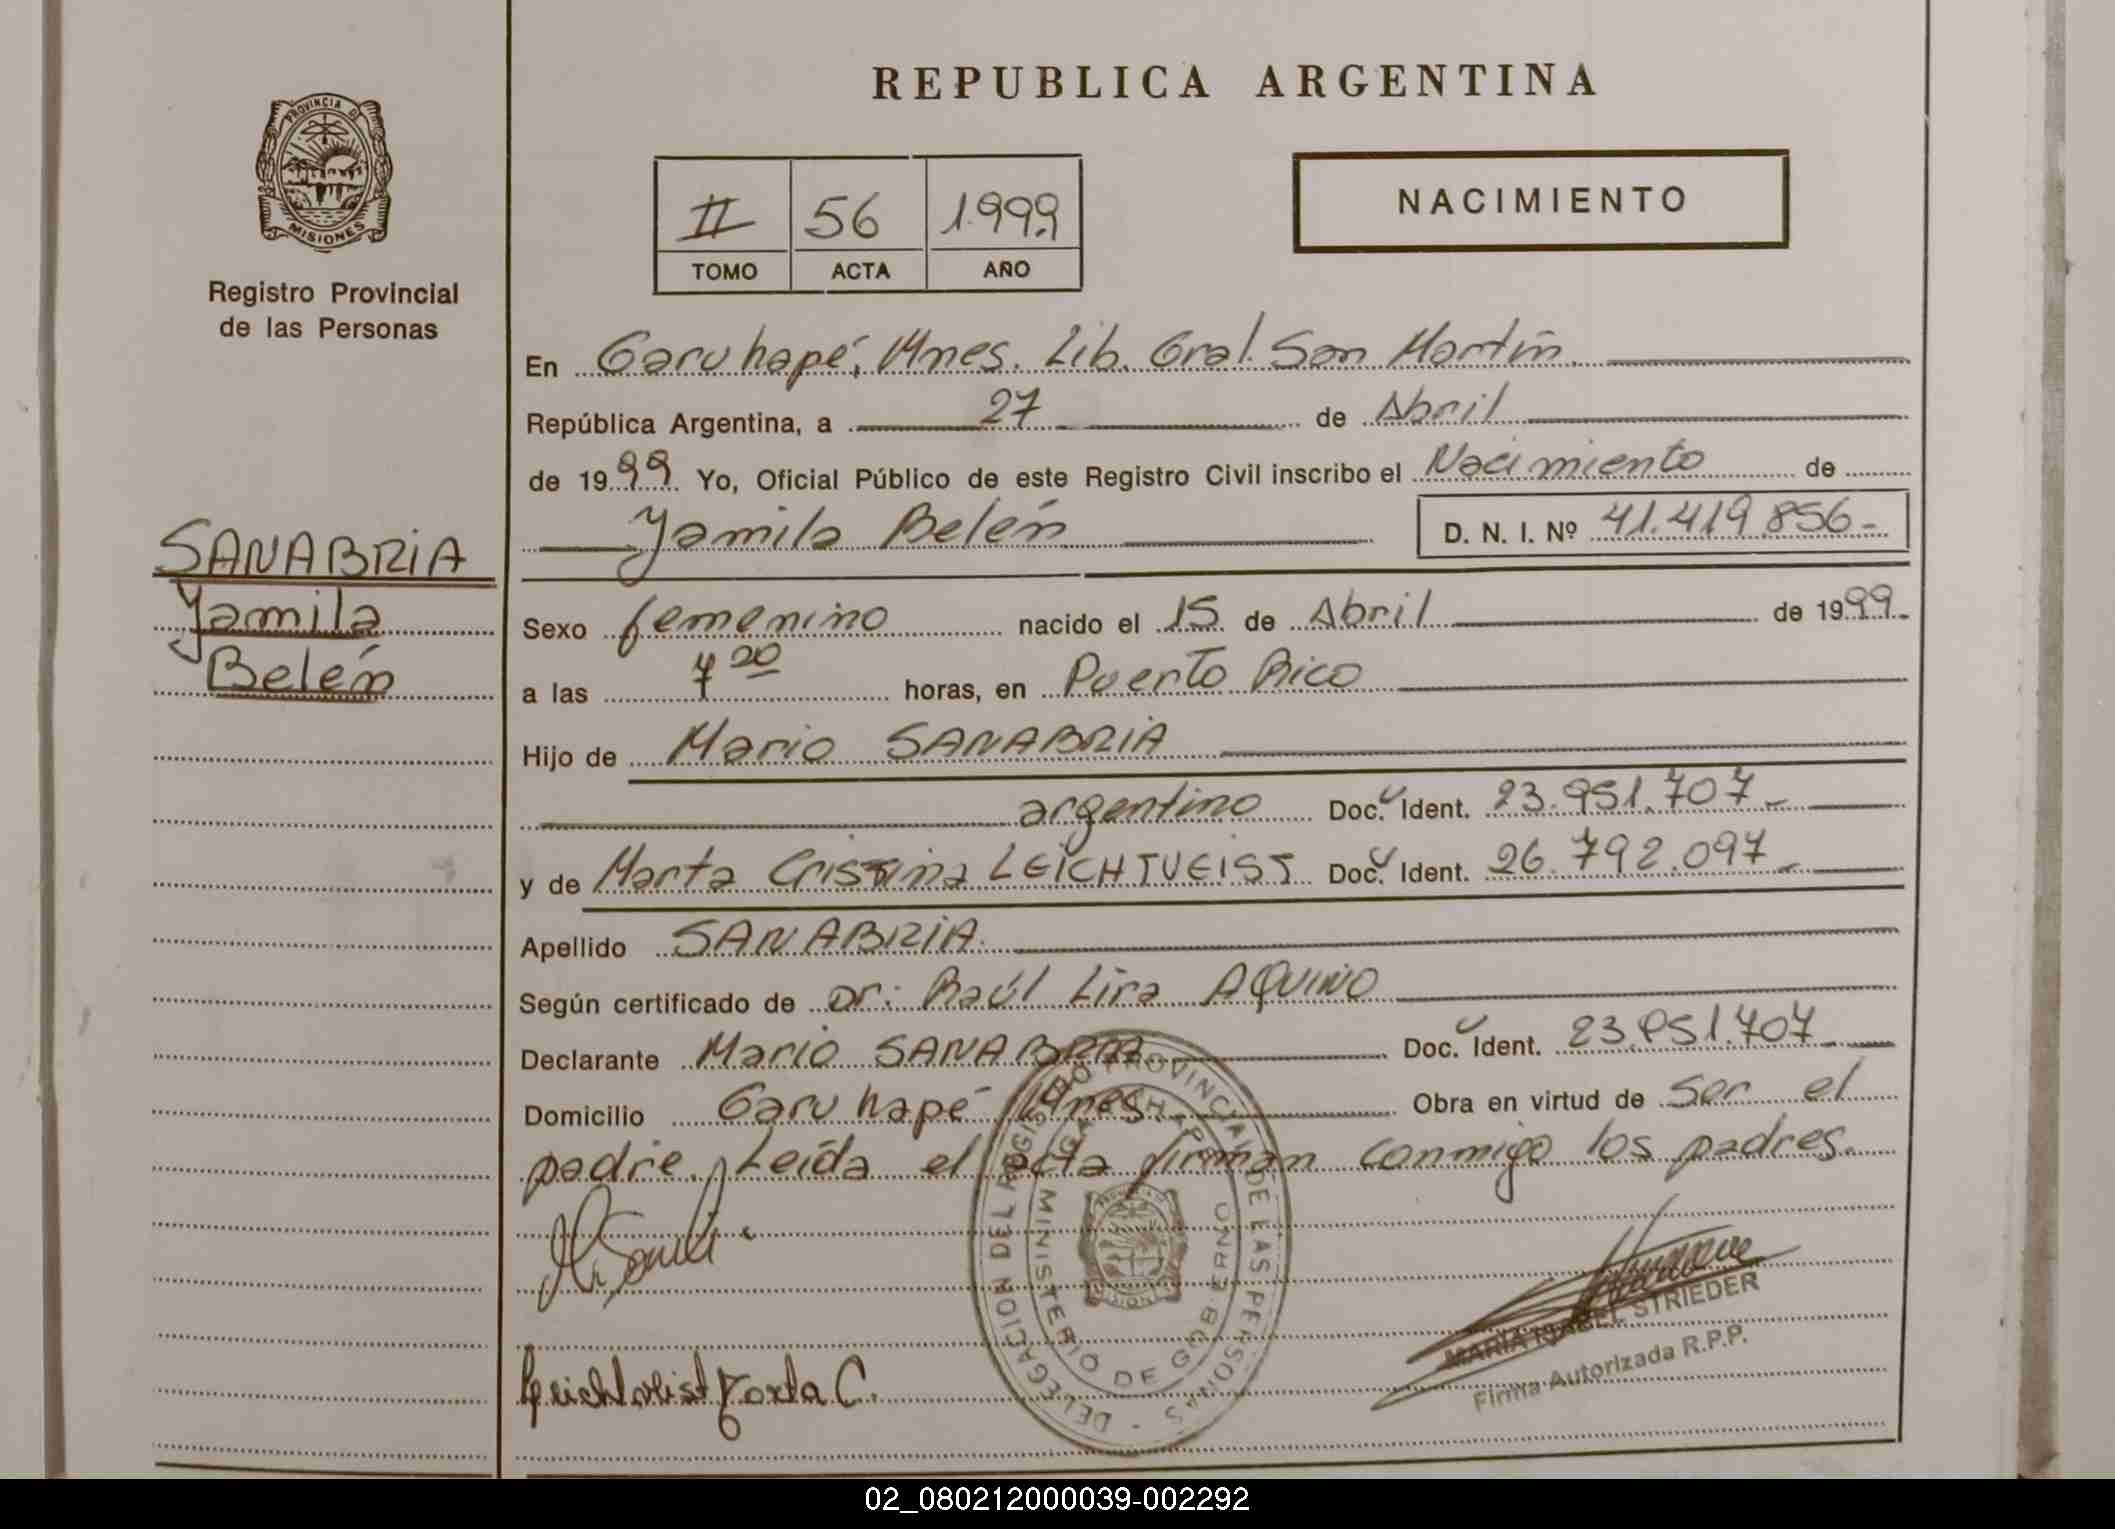 REPUBLICA ARGENTINA
PROVINCIA DE
MISIONES
Registro Provincial
de las Personas
II 56 1999
TOMO ACTA AÑO
NACIMIENTO
En Garuhapé, Mnes. Lib. Gral. San Martín.
República Argentina, a 27 de Abril
de 1999 Yo, Oficial Público de este Registro Civil inscribo el Nacimiento de
Yamila Belén D. N. I. Nº 41.419.856-
SANABRIA
Yamila
Belén
Sexo femenino nacido el 15 de Abril de 1999-
a las 7 20 horas, en Puerto Rico
Hijo de Mario SANABRIA
argentino Doc. Ident. 23.951.707-
y de Marta Cristina LEICHTVEIST Doc. Ident. 26.792.097-
Apellido SANABRIA.
Según certificado de Dr: Raúl Lira AQUINO
Declarante Mario SANABRIA Doc. Ident. 23.951.707-
Domicilio Garuhapé Mnes. Obra en virtud de ser el
padre. Leída el acta firman conmigo los padres.
DELEGACION DEL REGISTRO PROVINCIAL DE LAS PERSONAS -
MINISTERIO DE GOBIERNO
MISIONES
MARIA ISABEL STRIEDER
Firma Autorizada R.P.P.
Leichtveist Marta C.
02_080212000039-002292